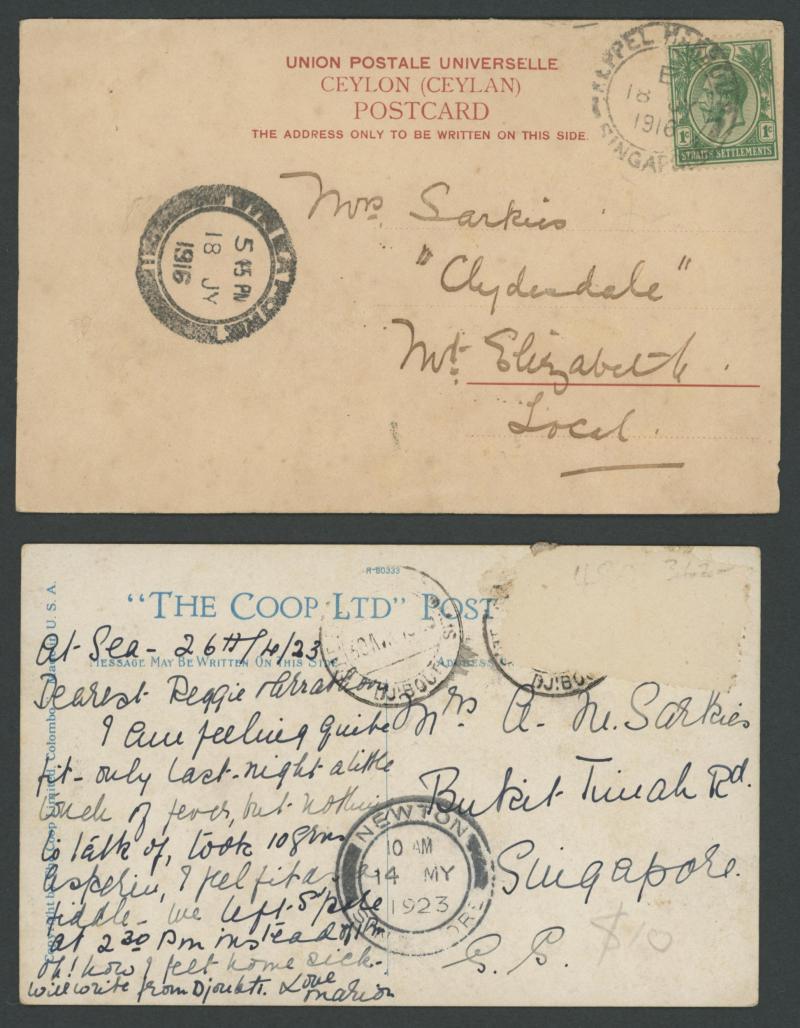 UNION POSTALE UNIVERSELLE
CEYLON (CEYLAN)
POSTCARD
THE ADDRESS ONLY TO BE WRITTEN ON THIS SIDE.
KEPPEL HARBOUR
18 JY
1916
SINGAPORE
1c 1c
STRAITS SETTLEMENTS
5 45 PM
18 JY
1916
Mrs Sarkies
"Clydesdale"
Mt. Elizabeth.
Local.
R-80333
"THE COOP LTD" POST
MESSAGE MAY BE WRITTEN ON THIS SIDE
ADDRESS
Copyright by The Coop Limited, Colombo. Made in U. S. A.
DJIBOUTI
DJIBOU
At Sea - 26th/4/23
Dearest Reggie
I am feeling quite
fit - only last night a little
touch of fever, but nothing
to talk of, took 10 grns
Asperin, I feel fit as a
fiddle - we left S'pore
at 2 30 pm instead of 1 pm
Oh! how I felt home sick -
will write from Djoubti. Love
Marion
Mrs A. M. Sarkies
Bukit Timah Rd.
Singapore.
S. S.
NEWTON
10 AM
14 MY
1923
SINGAPORE
$10